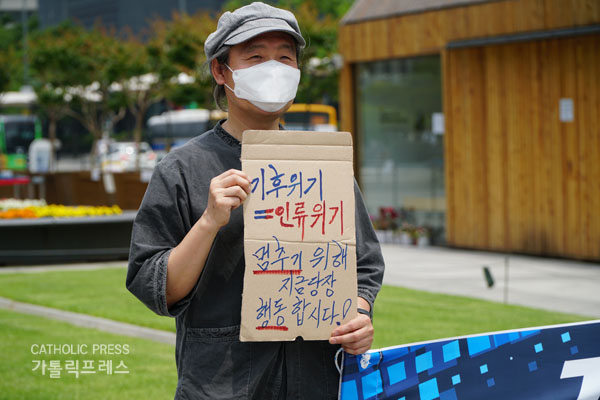 기후위기
=인류위기
멈추기 위해
지금당장
행동합시다!
CATHOLIC PRESS
가톨릭프레스